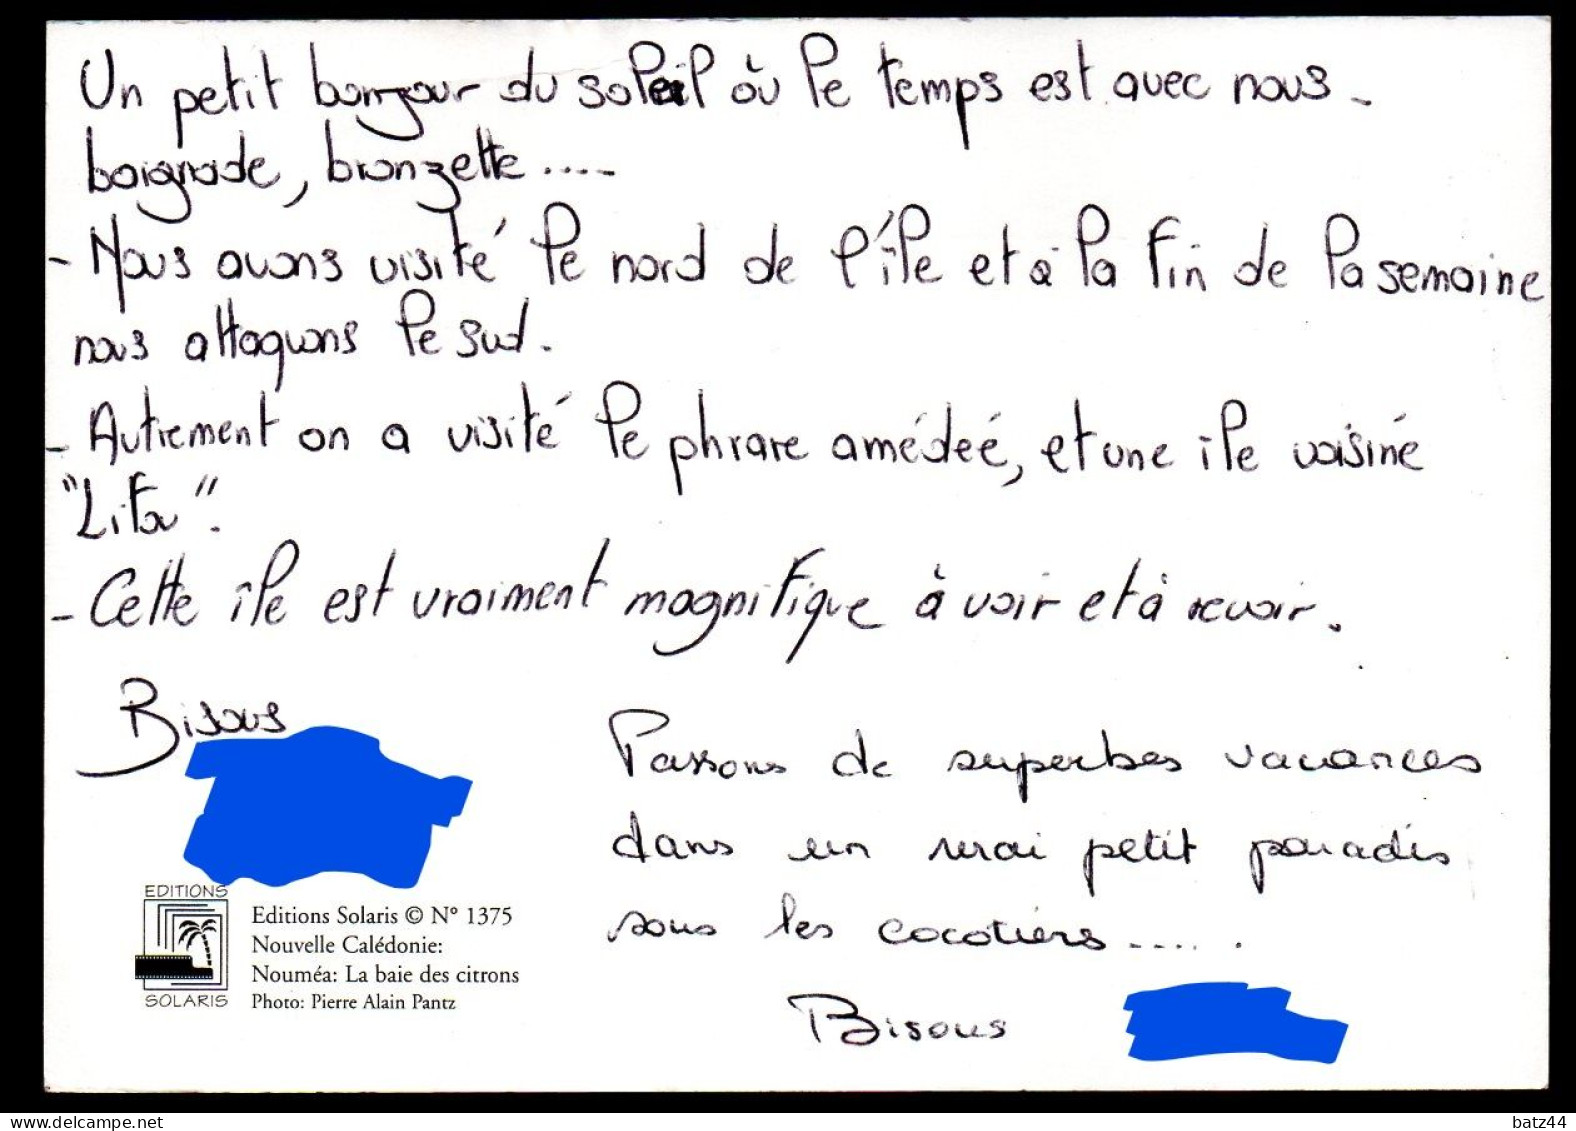 Un petit bonjour du soleil où le temps est avec nous -
baignade, bronzette .....
- Nous avons visité le nord de l'île et à la fin de la semaine
nous attaquons le sud.
- Autrement on a visité le phrare amédeé, et une île voisine
"Lifou".
- Cette île est vraiment magnifique à voir et à revoir.
Bisous
Passons de superbes vacances
dans un vrai petit paradis
sous les cocotiers ......
Bisous
EDITIONS
SOLARIS
Editions Solaris © N° 1375
Nouvelle Calédonie:
Nouméa: La baie des citrons
Photo: Pierre Alain Pantz
www.delcampe.net
batz44